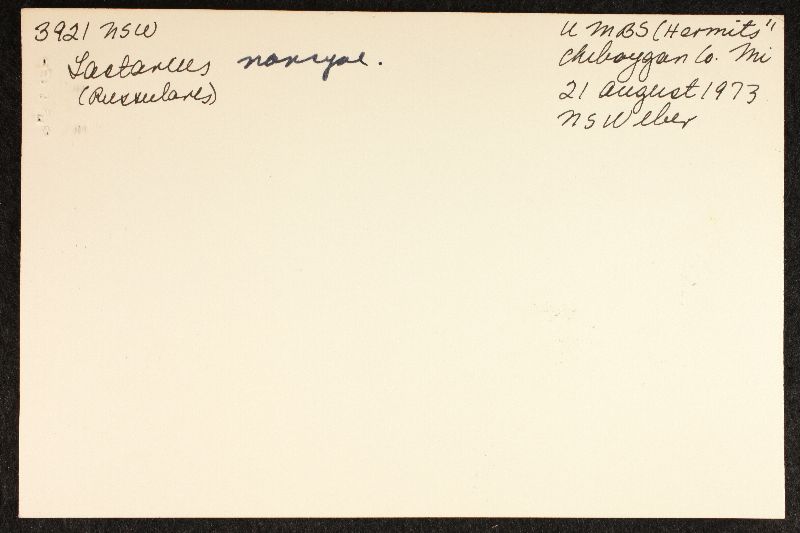 3921 NSW
Lactarius
(Russulares)
UMBS (Hermits"
Cheboygan Co. Mi
21 August 1973
NSWeber